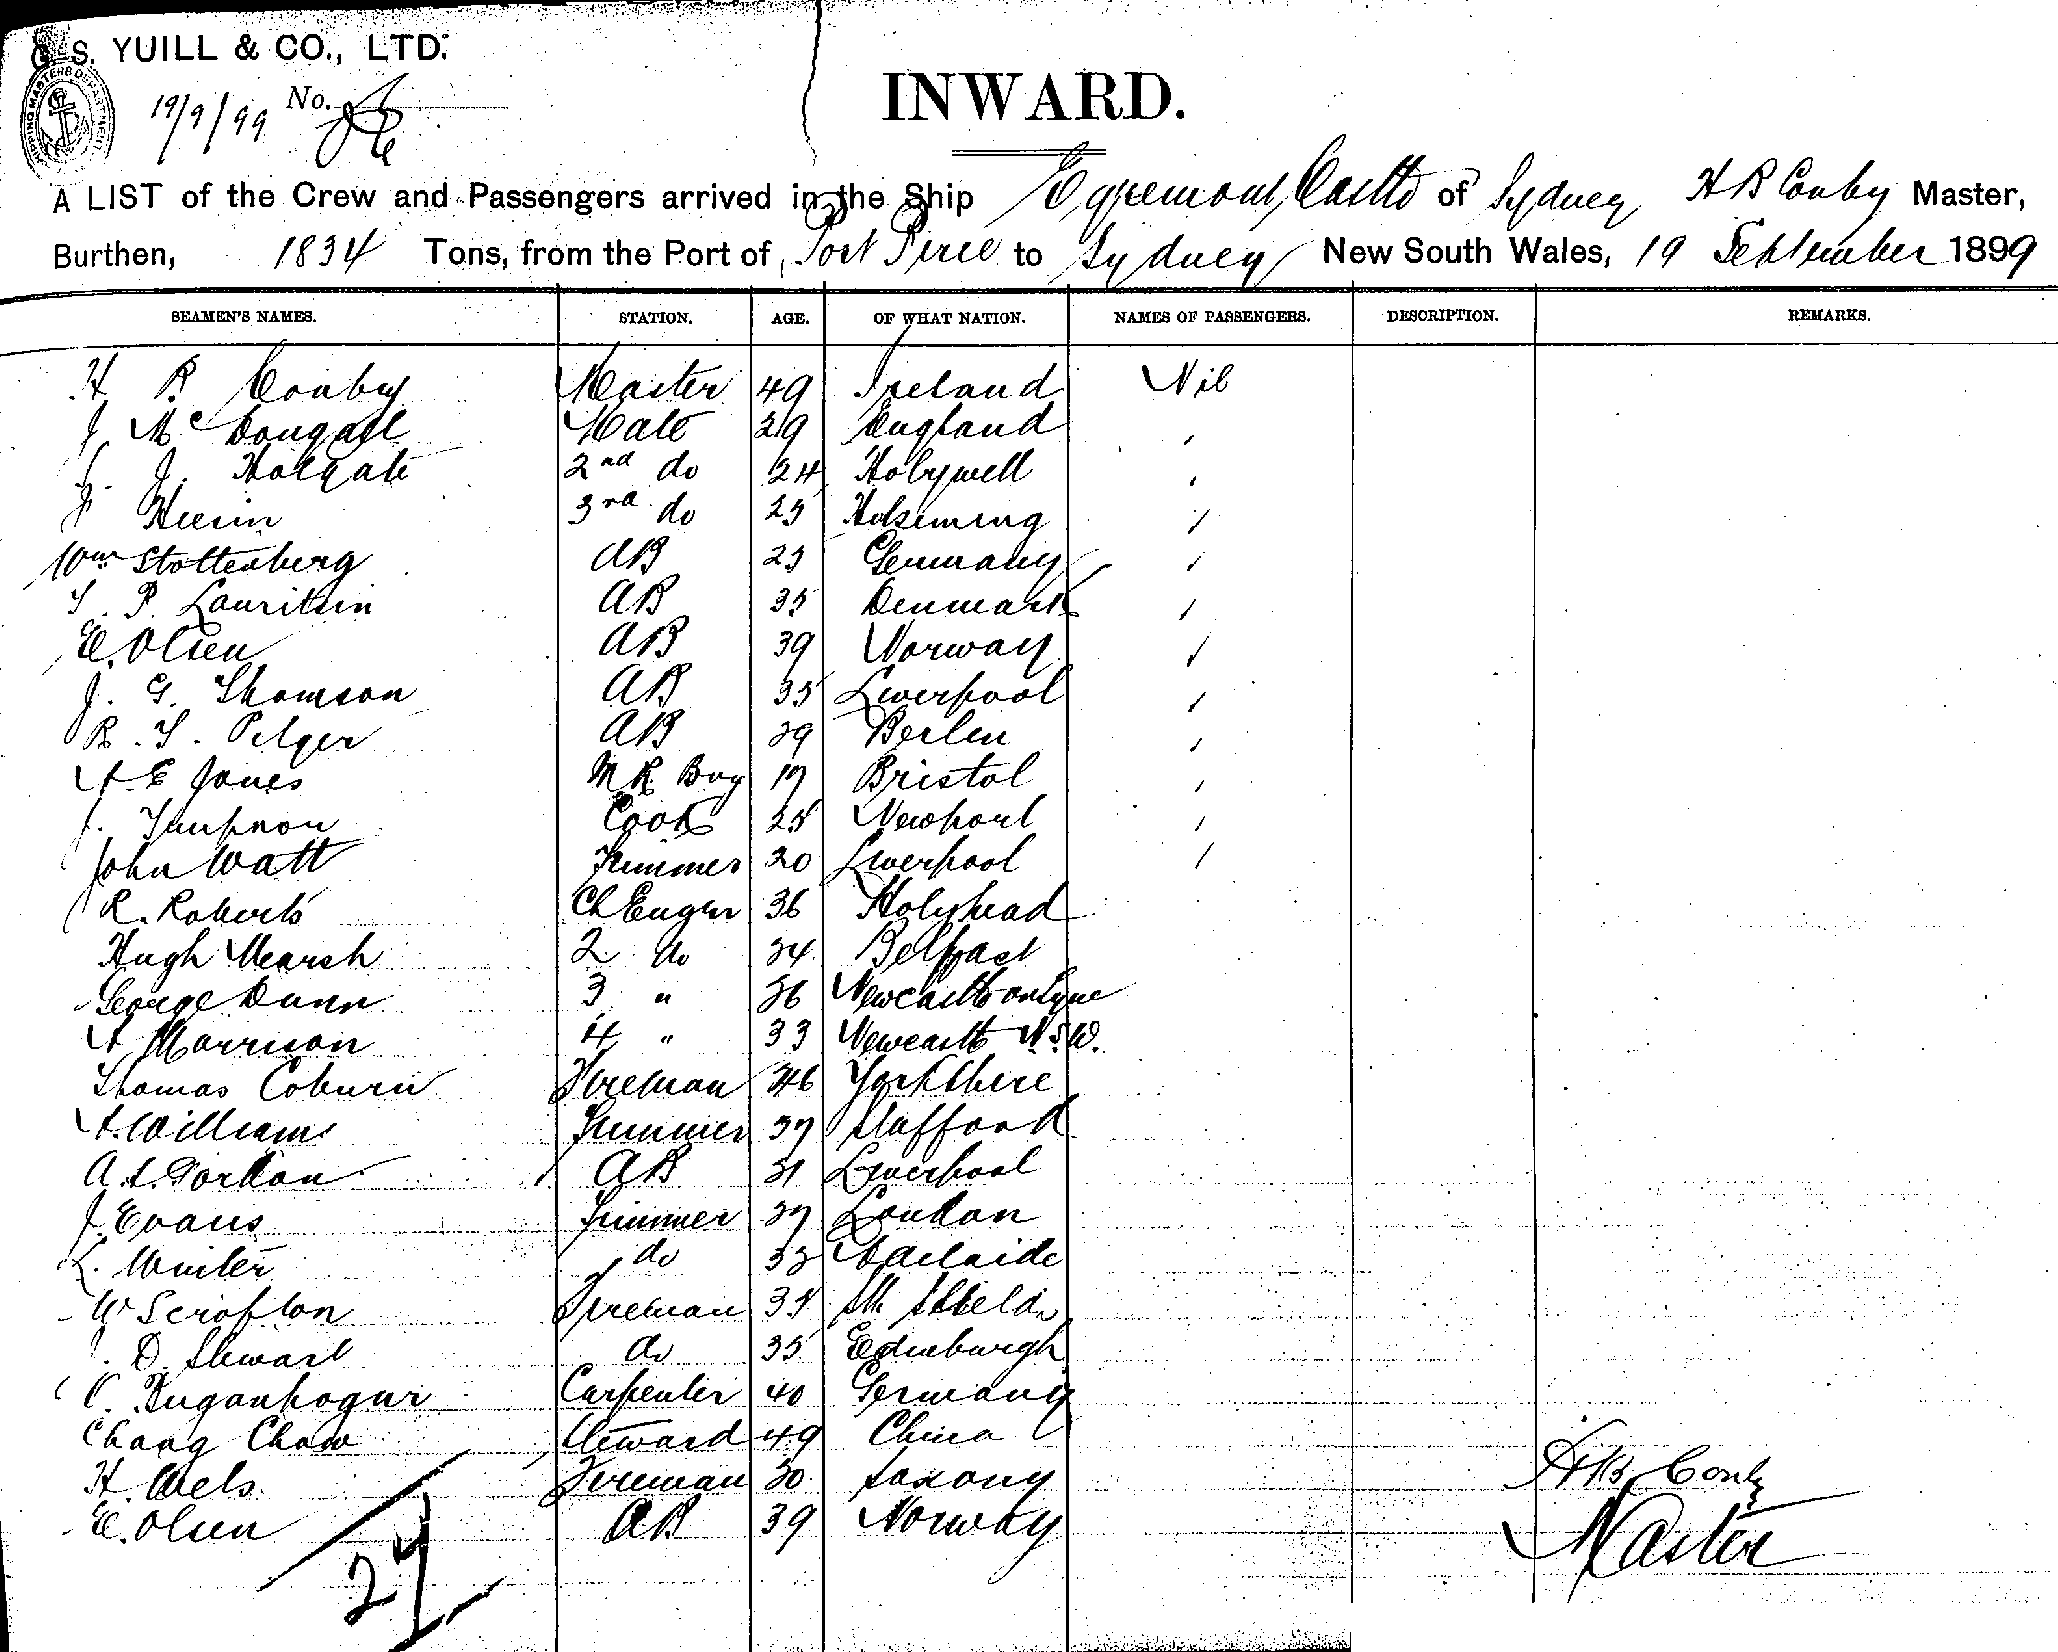 G. S. YUILL & CO., LTD.
19/9/99 No.
INWARD.
A LIST of the Crew and Passengers arrived in the Ship Egremont Castle of Sydney H B Conby Master,
Burthen, 1834 Tons, from the Port of Port Pirie to Sydney New South Wales, 19 September 1899
SEAMEN'S NAMES. STATION. AGE. OF WHAT NATION. NAMES OF PASSENGERS. DESCRIPTION. REMARKS.
H B Conby Master 49 Ireland Nil
J McDougall Mate 29 England
J. Holgate 2nd do 24 Holywell
3rd do 25
Wm Stoltenberg AB 25 Germany
P. Lauritsen AB 35 Denmark
E. Olsen AB 39 Norway
J. G. Thomson AB 35 Liverpool
R. T. Pilger AB 29 Berlin
A E Jones M R Boy 17 Bristol
J. Cook 25 Newport
John Watt Trimmer 20 Liverpool
R. Roberts Ch Enger 36 Holyhead
Hugh Mearsh 2 do 34 Belfast
George Dunn 3 " 36 Newcastle on Tyne
A Morrison 4 " 33 Newcastle N.S.W.
Thomas Coburn Fireman 46 Yorkshire
A. Williams Trimmer 37 Stafford
A. L. Gordon AB 31 Liverpool
J. Evans Trimmer 37 London
L. Winter do 33 Adelaide
W Scrofton Fireman 35 Sth Shields
J. D. Stewart do 35 Edinburgh
Carpenter 40 Germany
Chang Chow Steward 49 China
H. Oels Fireman 30 Saxony
E. Olsen AB 39 Norway
H B Conby
Master
27